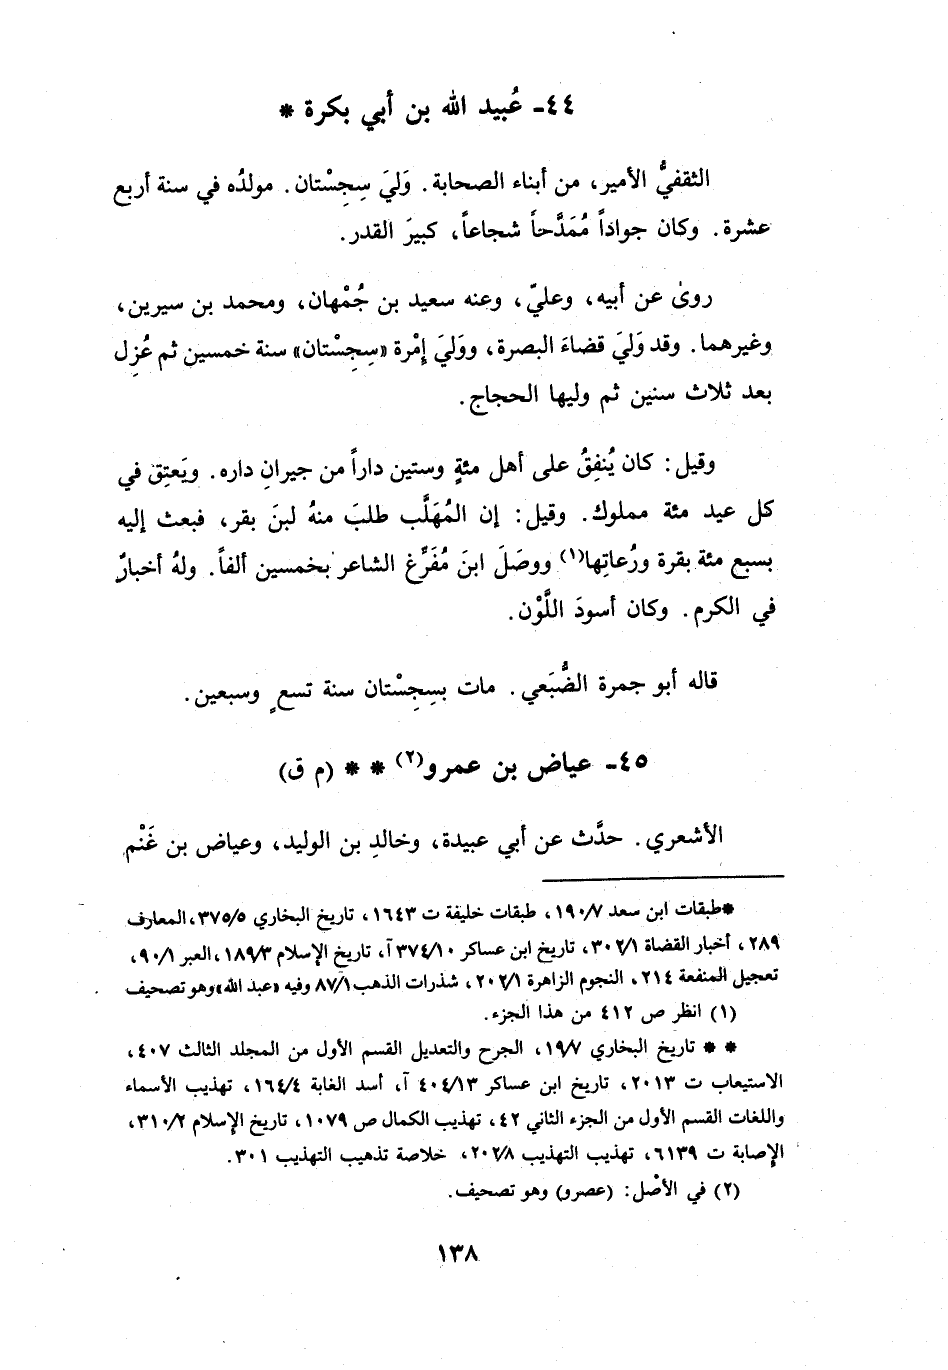 ٤٤- عُبيد الله بن أبي بكرة *
الثقفيُّ الأمير، من أبناء الصحابة. وَليَ سِجِسْتان. مولدُه في سنة أربع
عشرة. وكان جواداً مُمَدَّحاً شجاعاً، كبيرَ القدر.
روىٰ عن أبيه، وعليّ، وعنه سعيد بن جُمْهان، ومحمد بن سيرين،
وغيرهما. وقد وَليَ قضاءَ البصرة، ووَليَ إمْرة «سِجِسْتان» سنة خمسين ثم عُزِل
بعد ثلاث سنين ثم وليها الحجاج.
وقيل: كان يُنفِقُ على أهل مئةٍ وستين داراً من جيرانِ داره. ويَعتِق في
كل عيد مئة مملوك. وقيل: إن المُهَلَّب طلبَ منهُ لبنَ بقر، فبعث إليه
بسبع مئة بقرة ورُعاتِها(١) ووصَلَ ابنَ مُفَرِّغ الشاعر بخمسين ألفاً. ولهُ أخبارٌ
في الكرم. وكان أسودَ اللَّوْن.
قاله أبو جمرة الضُّبَعي. مات بسِجِسْتان سنة تسعٍ وسبعين.
٤٥- عياض بن عمرو(٢) * * (م ق)
الأشعري. حدَّث عن أبي عبيدة، وخالدِ بن الوليد، وعياض بن غَنْم
*طبقات ابن سعد ١٩٠/٧، طبقات خليفة ت ١٦٤٣، تاريخ البخاري ٣٧٥/٥، المعارف
٢٨٩، أخبار القضاة ٣٠٢/١، تاريخ ابن عساكر ٣٧٤/١٠ آ، تاريخ الإسلام ١٨٩/٣، العبر ٩٠/١،
تعجيل المنفعة ٢١٤، النجوم الزاهرة ٢٠٢/١، شذرات الذهب ٨٧/١ وفيه «عبد الله» وهو تصحيف
(١) انظر ص ٤١٢ من هذا الجزء.
* * تاريخ البخاري ١٩/٧، الجرح والتعديل القسم الأول من المجلد الثالث ٤٠٧،
الاستيعاب ت ٢٠١٣، تاريخ ابن عساكر ٤٠٤/١٣ آ، أسد الغابة ١٦٤/٤، تهذيب الأسماء
واللغات القسم الأول من الجزء الثاني ٤٢، تهذيب الكمال ص ١٠٧٩، تاريخ الإسلام ٣١٠/٢،
الإصابة ت ٦١٣٩، تهذيب التهذيب ٢٠٢/٨، خلاصة تذهيب التهذيب ٣٠١.
(٢) في الأصْل: (عصرو) وهو تصحيف.
١٣٨